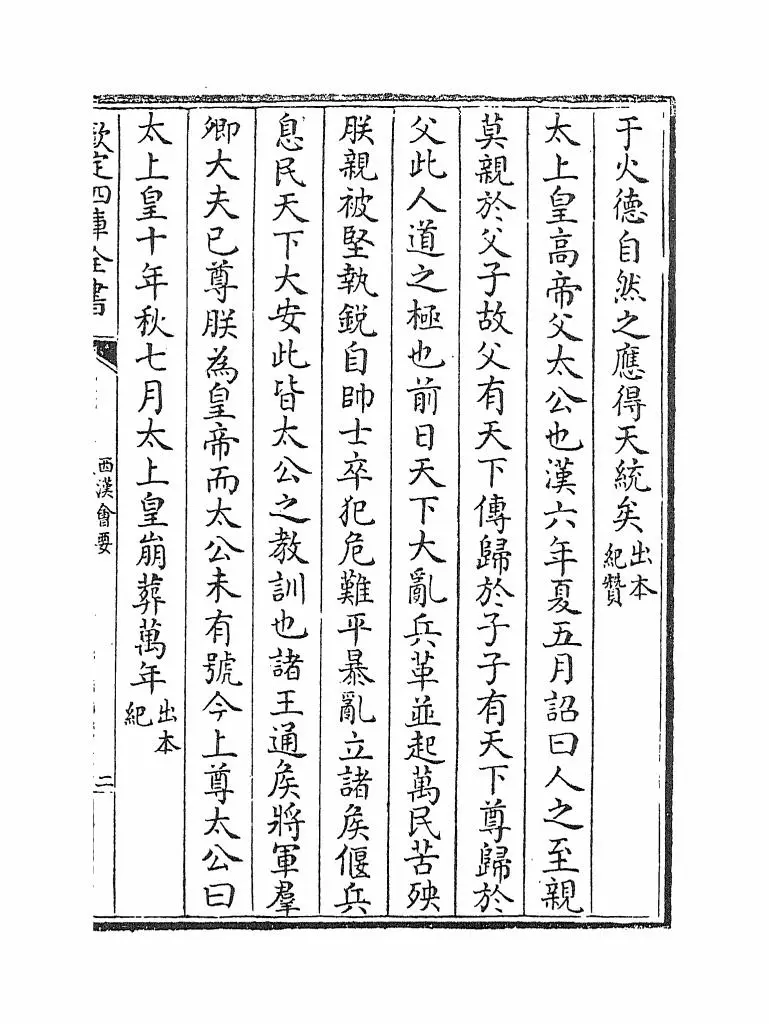 于火德自然之應得天統矣出本紀贊
太上皇高帝父太公也漢六年夏五月詔曰人之至親
莫親於父子故父有天下傳歸於子子有天下尊歸於
父此人道之極也前日天下大亂兵革並起萬民苦殃
朕親被堅執銳自帥士卒犯危難平暴亂立諸侯偃兵
息民天下大安此皆太公之教訓也諸王通侯將軍羣
卿大夫已尊朕為皇帝而太公未有號今上尊太公曰
太上皇十年秋七月太上皇崩葬萬年出本紀
欽定四庫全書
西漢會要
二